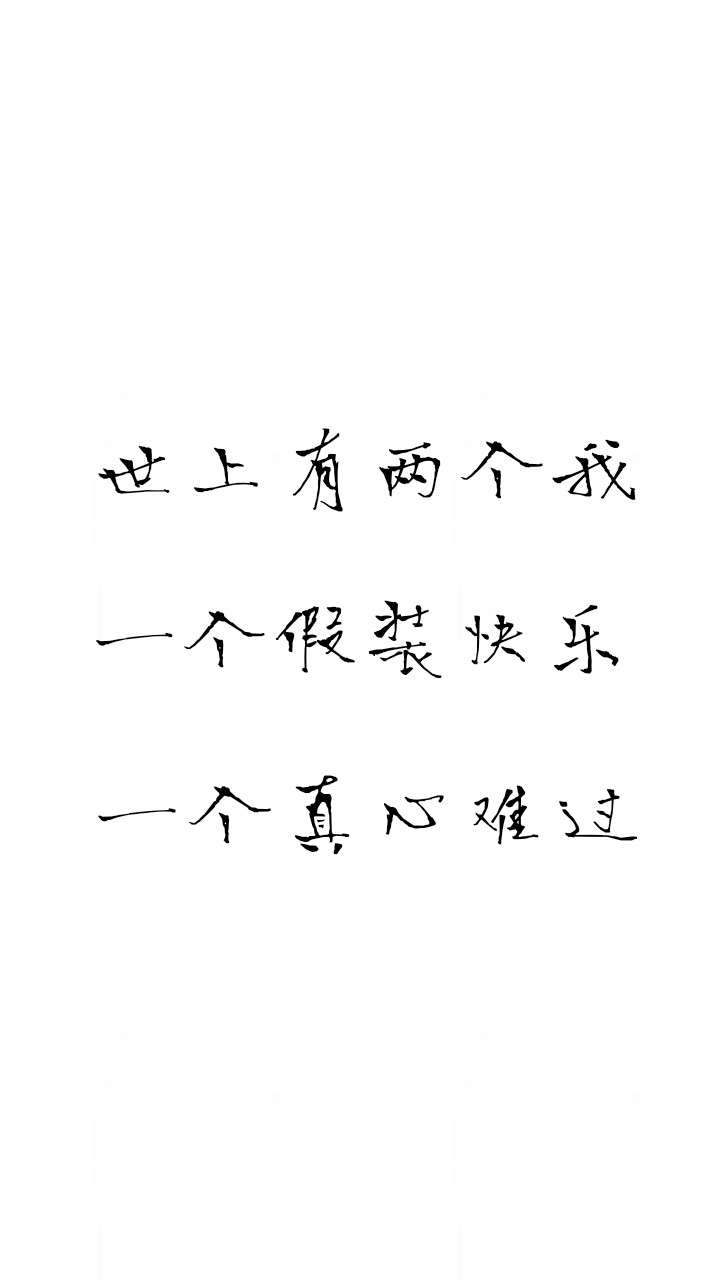 世上有两个我
一个假装快乐
一个真心难过